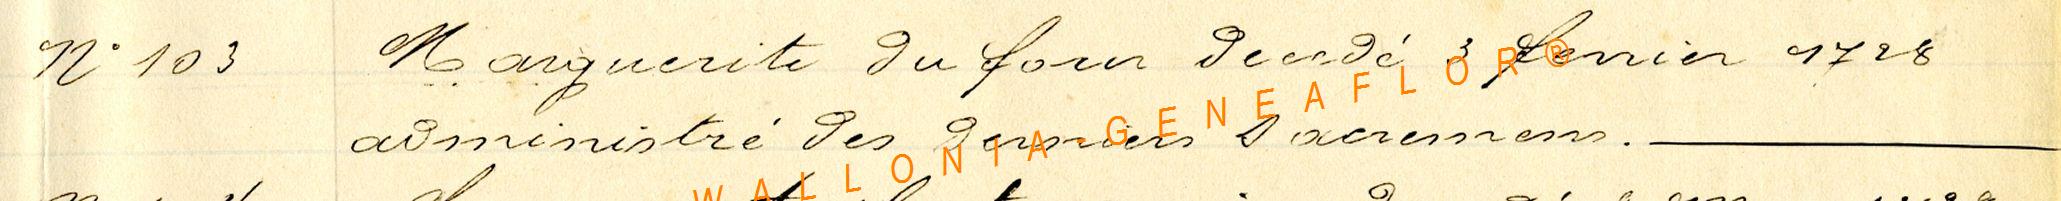 N° 103 Marguerite du four decedé 3 fevrier 1728
administré des derniers Sacremens.
WALLONIA-GENEAFLOR®